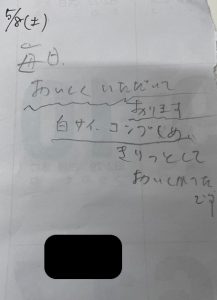 5/8(土)
毎日
おいしく いただいて
おります
白サイコンブじめ、
きりっとして
おいしかった
です